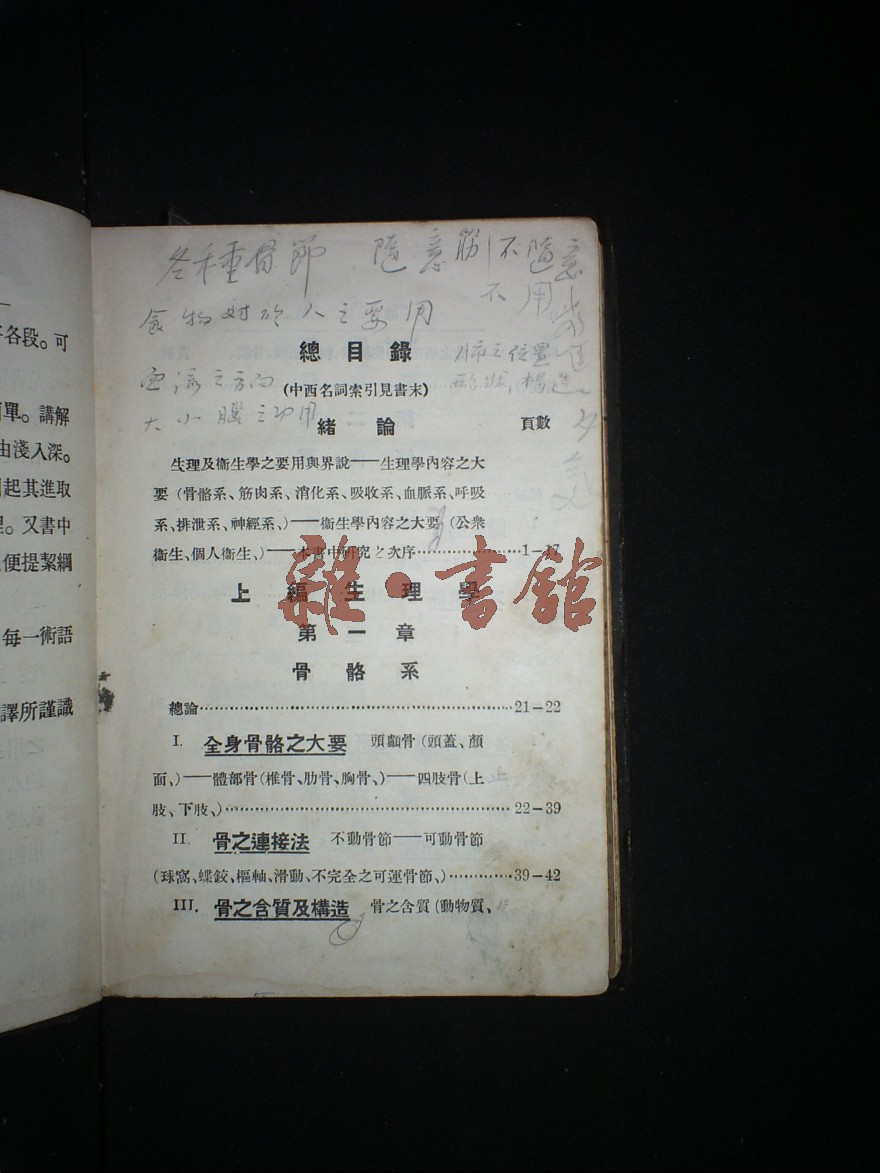 各段。可
單。講解
由淺入深。
起其進取
。又書中
便提絜綱
每一術語
譯所謹識
各種骨節 隨意筋 不隨意
不用
食物對於人之要用
總目錄
肺之位置
血液之方向
(中西名詞索引見書末)
大小腦之功用
緒論 頁數
生理及衞生學之要用與界說——生理學內容之大
要(骨骼系、筋肉系、消化系、吸收系、血脈系、呼吸
系、排泄系、神經系、)——衞生學內容之大要(公衆
衞生、個人衞生、)——本書中研究之次序…………………1—17
雜·書館
上編 生理學
第一章
骨骼系
總論……………………………………………21—22
I. 全身骨骼之大要 頭顱骨(頭蓋、顏
面、)——體部骨(椎骨、肋骨、胸骨、)——四肢骨(上
肢、下肢、)……………………………………………22—39
II. 骨之連接法 不動骨節——可動骨節
(球窩、蝶鉸、樞軸、滑動、不完全之可運骨節、)…………39—42
III. 骨之含質及構造 骨之含質(動物質、